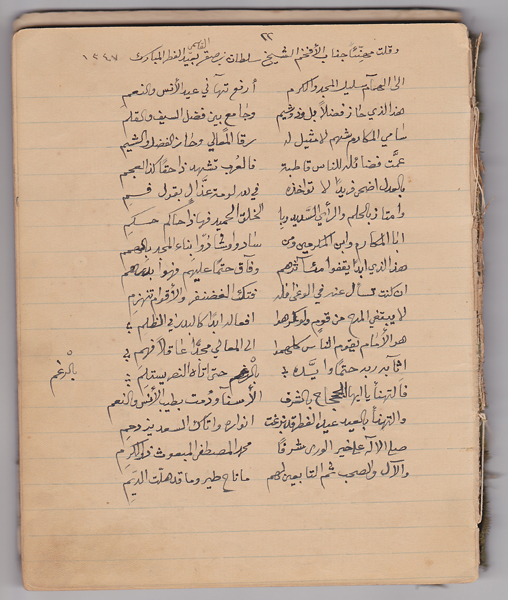 ٢٢
وقلت مهنئا جناب الأفخم الشيخ سلطان بن صقر القاسمي بعيد الفطر المبارك ١٣٤٧
الى الهمام سليل المجد والكرم أرفع تهاني عيد الأنس والنعم
هذا الذي حاز فضلاً بل وجامع بين فضل السيف والقلم
سامي المكارم شهم لا مثيل له رقا المعالي وحاز الفضل والشيم
عمّت فضائله للناس قاطبة فالعرب تشهد ذا حقا كذا العجم
بالعدل اضحى فريدًا لا تؤاخذه في الله لومة عذال بقول فم
وامتاز بالحلم والرأي السديد وبا الخلق الحميد فهاذا حاكم حكم
ابا المكارم وابن المكرمين ومن سادوا وشادوا بناء المجد بالهمم
هذا الذي ابدا يقفوا مئآثرهم وفاق حتما عليهم فهوا بدرهم
ان كنت تسأل عنه في الوغى فله فتك الغضنفر والأقوام تنهزم
لا يبتغي المدح من قوم ولو افعاله ابدًا كالبدر في الظلم
هو الأمام لقوم الناس كلهموا الى المعالي مجدًا عاقلا فهم
ربه حتما وايّده بالرغم حتما اتاه النصر يستلم
بالرغم
فالتهنأ يا ايها الحجاج بالشرف الأسنا ودمت بطيب الأنس والنعم
والتهنأ بالعيد عيد الفطر قد بزغت انواره واتاك السعد يزدحم
صلى الاله على خير الورى شرفًا محمد المصطفى المبعوث ذو الكرم
والآل والصحب ثم التابعين لهم ما ناح طير وما قد هلّت الديَم